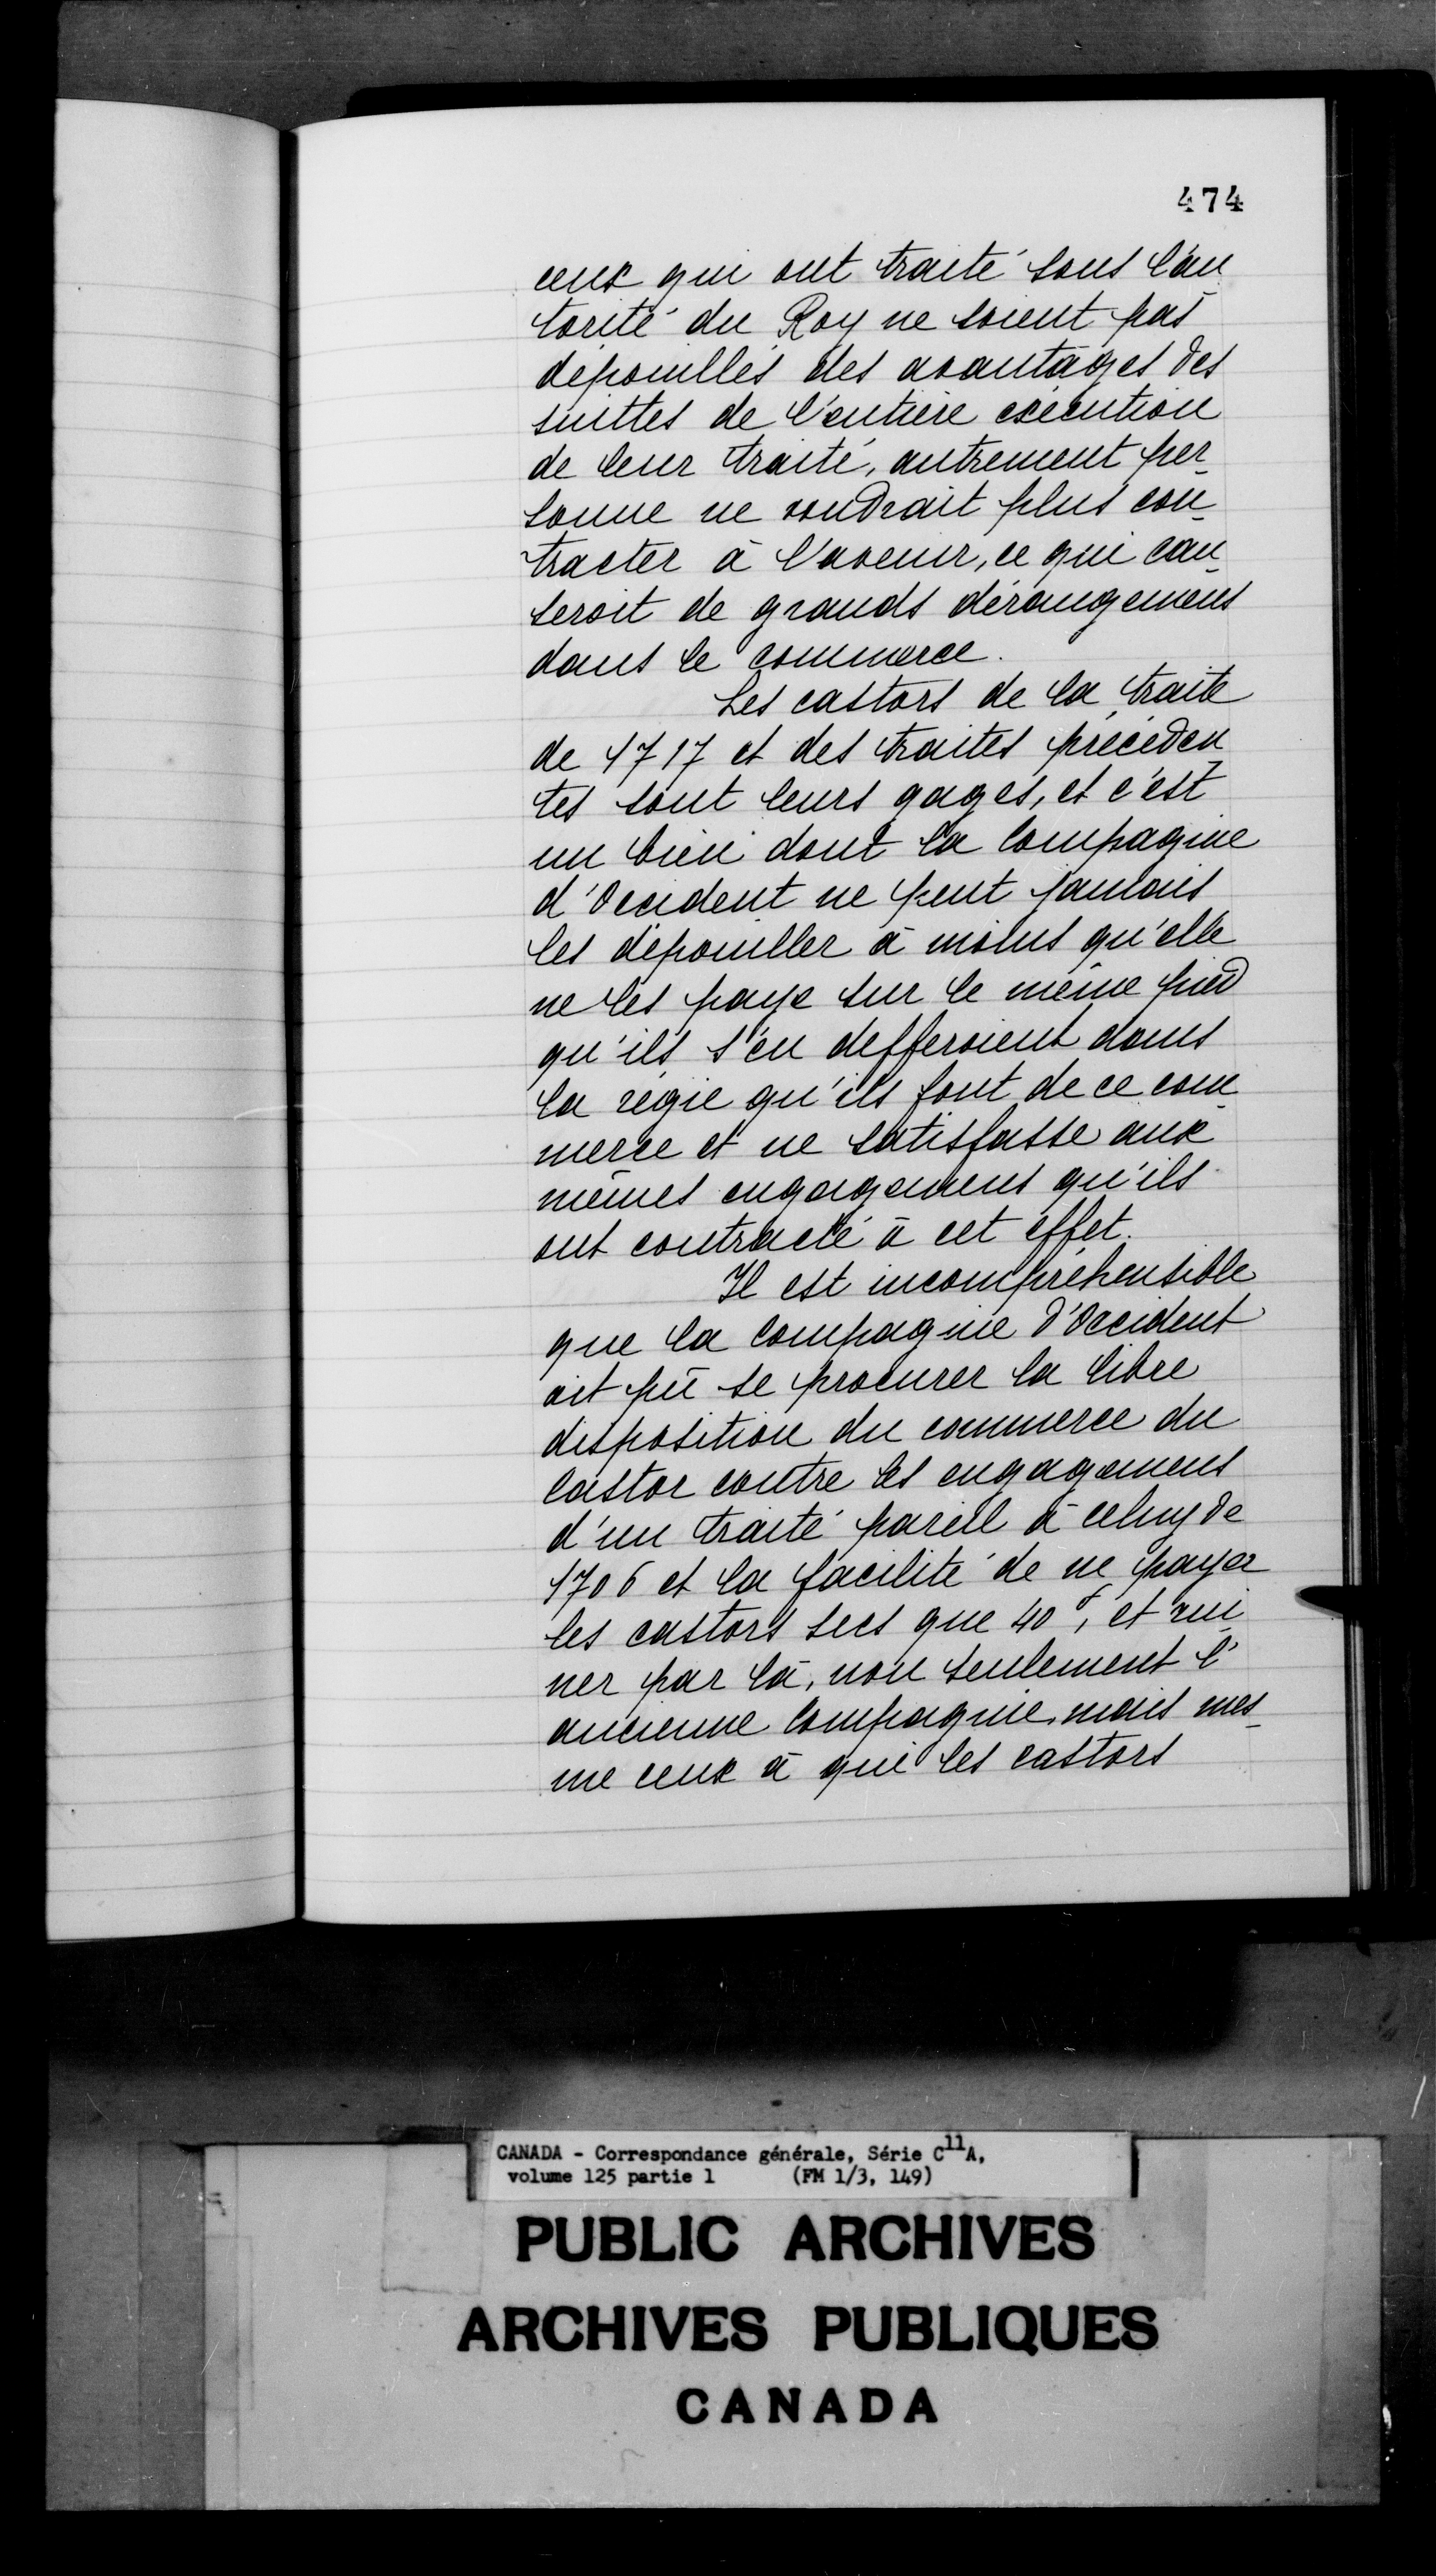 474
ceux qui ont traité sous l'au
torité du Roy ne soient pas
dépouillés des avantages des
suittes de l'entière exécution
de leur traité, autrement per
sonne ne voudrait plus con
tracter à l'avenir, ce qui cau
seroit de grands dérangemens
dans le commerce.
Les castors de la traite
de 1717 et des traites précéden
tes sont leurs gages, et c'est
un bien dont la Compagnie
d'Occident ne peut jamais
les dépouiller à moins qu'elle
ne les paye sur le même pied
qu'ils s'en defferoient dans
la régie qu'ils font de ce com
merce et ne satisfasse aux
mêmes engagemens qu'ils
ont contracté à cet effet.
Il est incompréhensible
que la Compagnie d'Occident
ait pû se procurer la libre
disposition du commerce du
Castor contre les engagemens
d'un traité pareil à celuy de
1706 et la facilité de ne payer
les castors secs que 40 s, et rui
ner par là, non seulement l'
ancienne Compagnie, mais mes
me ceux à qui les castors
CANADA - Correspondance générale, Série C11A,
volume 125 partie 1 (FM 1/3, 149)
PUBLIC ARCHIVES
ARCHIVES PUBLIQUES
CANADA